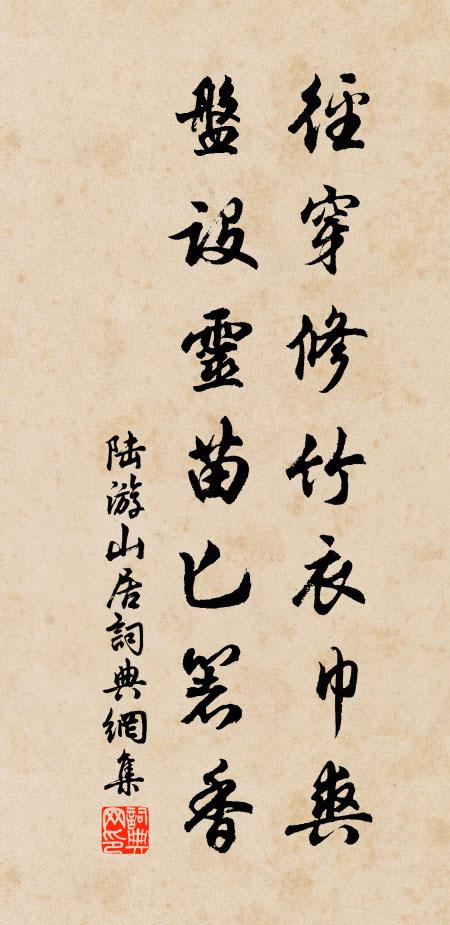 徑穿修竹衣巾爽
盤設靈苗匕箸香
陸游山居詞典網集
詞典网印